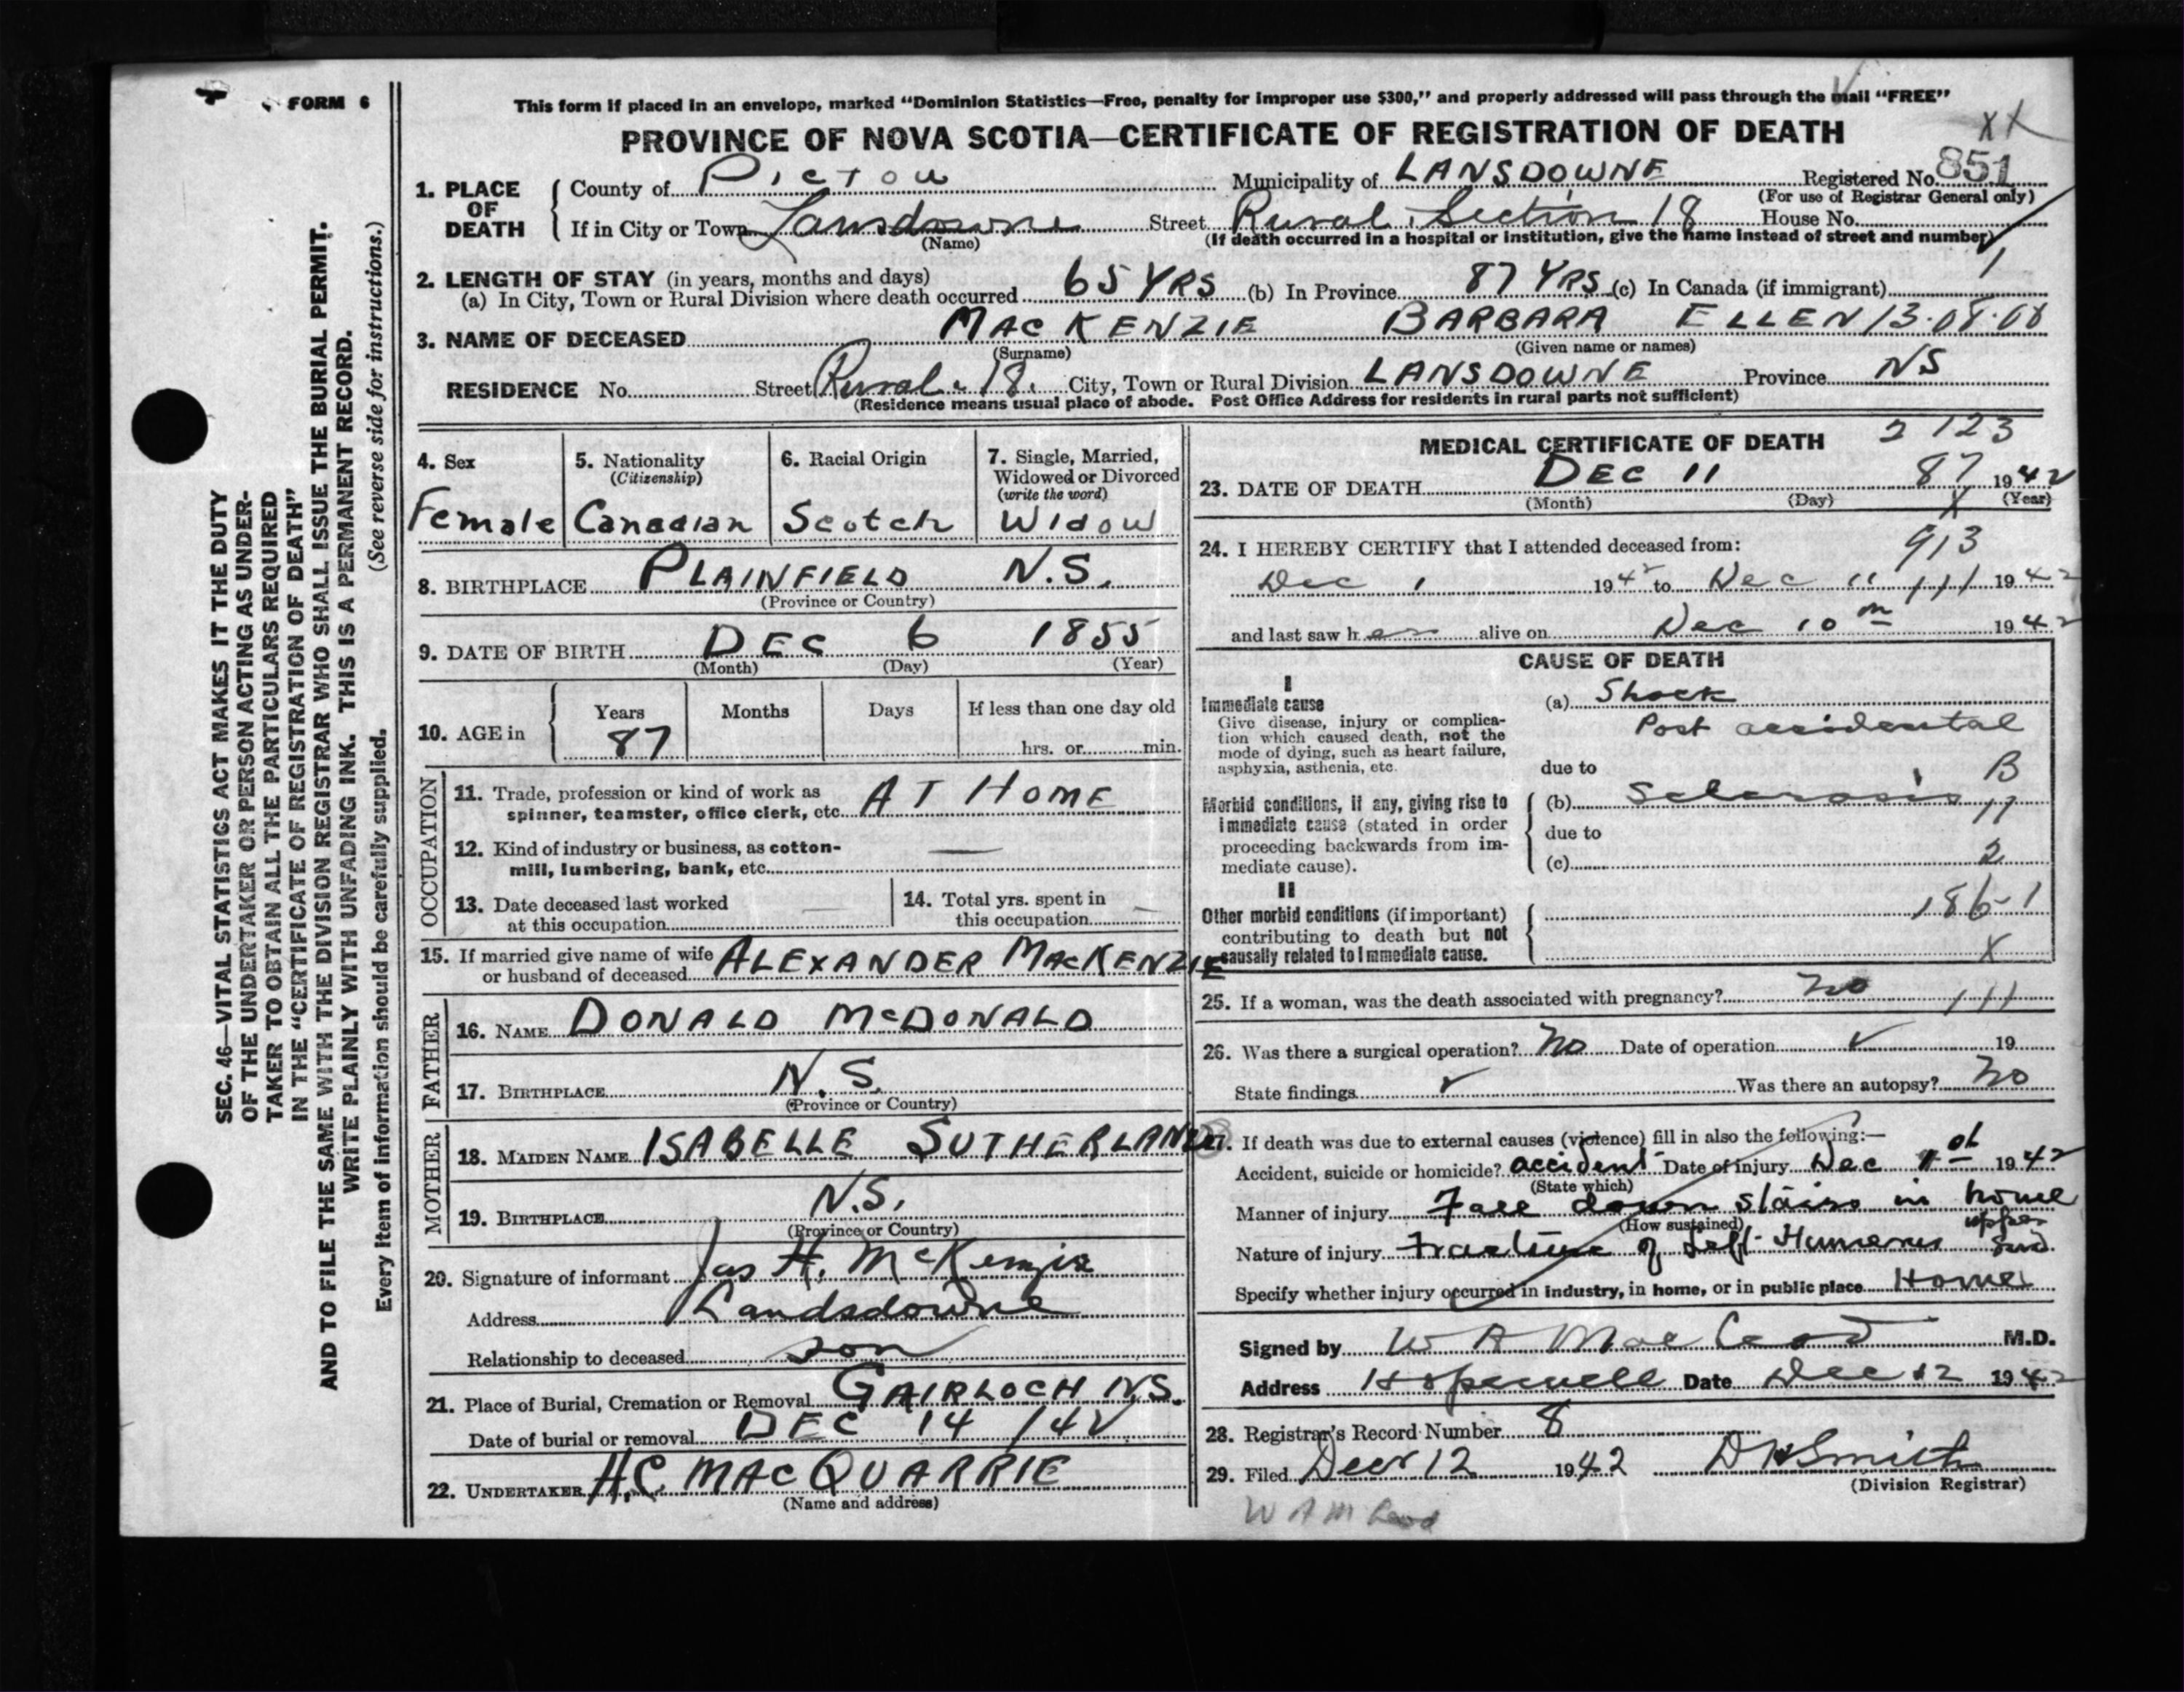 FORM 6
This form if placed in an envelope, marked "Dominion Statistics—Free, penalty for improper use $300," and properly addressed will pass through the mail "FREE"
PROVINCE OF NOVA SCOTIA—CERTIFICATE OF REGISTRATION OF DEATH
XX
1. PLACE OF DEATH
County of Pictou Municipality of LANSDOWNE Registered No. 851
(For use of Registrar General only)
If in City or Town Lansdowne Street Rural Section 18 House No.
(Name)
(If death occurred in a hospital or institution, give the name instead of street and number)
2. LENGTH OF STAY (in years, months and days)
(a) In City, Town or Rural Division where death occurred 65 YRS (b) In Province 87 YRS (c) In Canada (if immigrant)
3. NAME OF DECEASED MACKENZIE BARBARA ELLEN
(Surname) (Given name or names)
RESIDENCE No. Street Rural 18. City, Town or Rural Division LANSDOWNE Province NS
(Residence means usual place of abode. Post Office Address for residents in rural parts not sufficient)
4. Sex
Female
5. Nationality
(Citizenship)
Canadian
6. Racial Origin
Scotch
7. Single, Married,
Widowed or Divorced
(write the word)
Widow
8. BIRTHPLACE PLAINFIELD N.S.
(Province or Country)
9. DATE OF BIRTH DEC 6 1855
(Month) (Day) (Year)
10. AGE in
Years Months Days If less than one day old
87 hrs. or min.
OCCUPATION
11. Trade, profession or kind of work as
spinner, teamster, office clerk, etc. AT HOME
12. Kind of industry or business, as cotton-
mill, lumbering, bank, etc. —
13. Date deceased last worked
at this occupation —
14. Total yrs. spent in
this occupation —
15. If married give name of wife
or husband of deceased ALEXANDER MACKENZIE
FATHER
16. NAME DONALD McDONALD
17. BIRTHPLACE N.S.
(Province or Country)
MOTHER
18. MAIDEN NAME ISABELLE SUTHERLAND
19. BIRTHPLACE N.S.
(Province or Country)
20. Signature of informant Jas H. McKenzie
Address Landsdowne
Relationship to deceased son
21. Place of Burial, Cremation or Removal GAIRLOCH N.S.
Date of burial or removal DEC 14 /42
22. UNDERTAKER H.C. MACQUARRIE
(Name and address)
MEDICAL CERTIFICATE OF DEATH 2123
23. DATE OF DEATH DEC 11 87 1942
(Month) (Day) (Year)
X
24. I HEREBY CERTIFY that I attended deceased from:
913
Dec 1 1942 to Dec 11 1942
and last saw her alive on Dec 10th 1942
CAUSE OF DEATH
I
Immediate cause
Give disease, injury or complica-
tion which caused death, not the
mode of dying, such as heart failure,
asphyxia, asthenia, etc.
(a) Shock
Post accidental
due to
B
Morbid conditions, if any, giving rise to
immediate cause (stated in order
proceeding backwards from im-
mediate cause).
(b) Sclerosis
11
due to
(c) 2
II
Other morbid conditions (if important)
contributing to death but not
causally related to immediate cause.
186-1
X
25. If a woman, was the death associated with pregnancy? no 111
26. Was there a surgical operation? No Date of operation 19
State findings Was there an autopsy? No
27. If death was due to external causes (violence) fill in also the following:—
Accident, suicide or homicide? accident Date of injury Dec 1st 1942
(State which)
Manner of injury Fall down stairs in home
(How sustained)
Nature of injury Fracture of Left Humerus upper end
Specify whether injury occurred in industry, in home, or in public place Home
Signed by W A MacLeod M.D.
Address Hopewell Date Dec 12 1942
28. Registrar's Record Number 8
29. Filed Dec 12 1942 D H Smith
(Division Registrar)
W A McLeod
SEC. 46—VITAL STATISTICS ACT MAKES IT THE DUTY
OF THE UNDERTAKER OR PERSON ACTING AS UNDER-
TAKER TO OBTAIN ALL THE PARTICULARS REQUIRED
IN THE "CERTIFICATE OF REGISTRATION OF DEATH"
AND TO FILE THE SAME WITH THE DIVISION REGISTRAR WHO SHALL ISSUE THE BURIAL PERMIT.
WRITE PLAINLY WITH UNFADING INK. THIS IS A PERMANENT RECORD.
Every item of information should be carefully supplied. (See reverse side for instructions.)